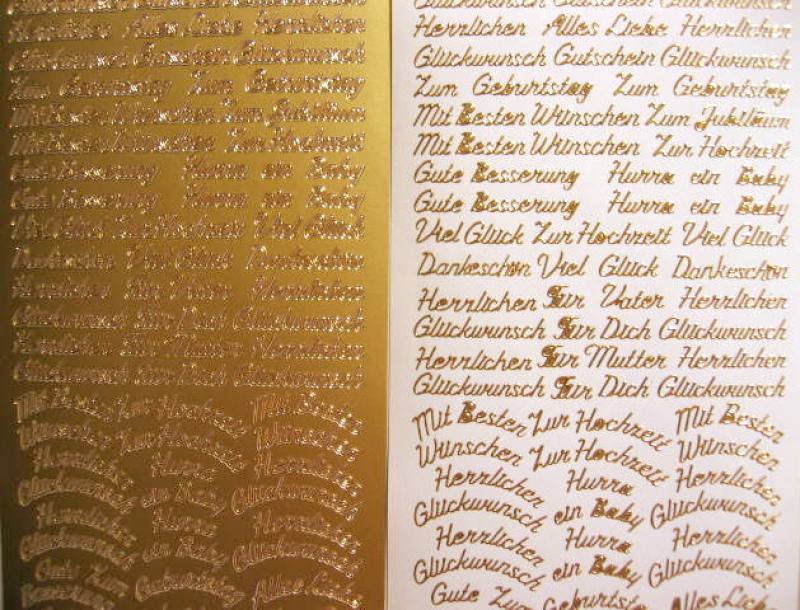 Herrlichen Alles Liebe Herrlichen
Glückwunsch Gutschein Glückwunsch
Zum Geburtstag Zum Geburtstag
Mit Besten Wünschen Zum Jubiläum
Mit Besten Wünschen Zur Hochzeit
Gute Besserung Hurra ein Baby
Gute Besserung Hurra ein Baby
Viel Glück Zur Hochzeit Viel Glück
Dankeschön Viel Glück Dankeschön
Herzlichen Für Vater Herzlichen
Glückwunsch Für Dich Glückwunsch
Herzlichen Für Mutter Herzlichen
Glückwunsch Für Dich Glückwunsch
Mit Besten Zur Hochzeit Mit Besten
Wünschen Zur Hochzeit Wünschen
Herzlichen Hurra Herzlichen
Glückwunsch ein Baby Glückwunsch
Herzlichen Hurra Herzlichen
Glückwunsch ein Baby Glückwunsch
Gute Zum Geburtstag Alles Liebe
Glückwunsch Gutschein Glückwunsch
Herzlichen Alles Liebe Herzlichen
Glückwunsch Gutschein Glückwunsch
Zum Geburtstag Zum Geburtstag
Mit Besten Wünschen Zum Jubiläum
Mit Besten Wünschen Zur Hochzeit
Gute Besserung Hurra ein Baby
Gute Besserung Hurra ein Baby
Viel Glück Zur Hochzeit Viel Glück
Dankeschön Viel Glück Dankeschön
Herzlichen Für Vater Herzlichen
Glückwunsch Für Dich Glückwunsch
Herzlichen Für Mutter Herzlichen
Glückwunsch Für Dich Glückwunsch
Mit Besten Zur Hochzeit Mit Besten
Wünschen Zur Hochzeit Wünschen
Herzlichen Hurra Herzlichen
Glückwunsch ein Baby Glückwunsch
Herzlichen Hurra Herzlichen
Glückwunsch ein Baby Glückwunsch
Gute Zum Geburtstag Alles Liebe